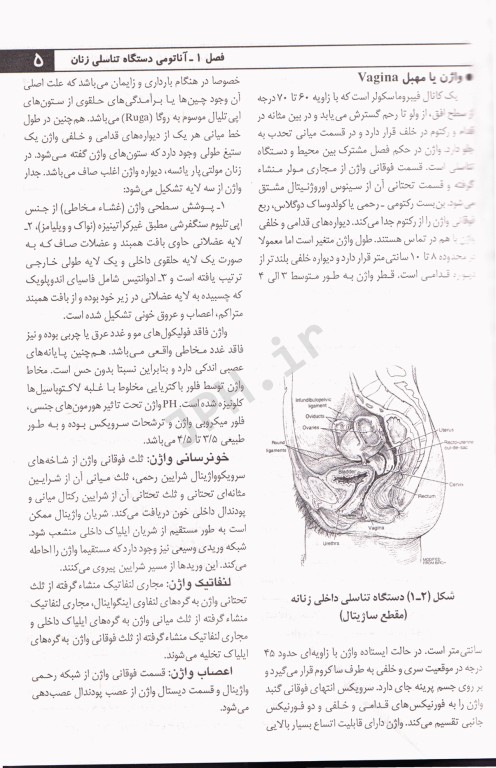 فصل ۱ ـ آناتومی دستگاه تناسلی زنان
۵
● واژن یا مهبل Vagina
یک کانال فیبروماسکولر است که با زاویه ۶۰ تا ۷۰ درجه
سطح افق، از ولو تا رحم گسترش می‌یابد و در بین مثانه در
و رکتوم در خلف قرار دارد و در قسمت میانی تحدب به
دارد. واژن در حکم فصل مشترک بین محیط و دستگاه
تناسلی است. قسمت فوقانی واژن از مجاری مولر منشاء
گرفته و قسمت تحتانی آن از سینوس اوروژنیتال مشتق
می‌شود. بن‌بست رکتومی ـ رحمی یا کولدوساک دوگلاس، ربع
فوقانی واژن را از رکتوم جدا می‌کند. دیواره‌های قدامی و خلفی
هم در تماس هستند. طول واژن متغیر است اما معمولا
محدوده ۸ تا ۱۰ سانتی‌متر قرار دارد و دیواره خلفی بلندتر از
قدامی است. قطر واژن به طور متوسط ۳ الی ۴
Infundibulopelvic
ligament
Oviducts
Ovaries
Round
ligaments
Bladder
Urethra
Vagina
Uterus
Recto-uterine
cul-de-sac
Cervix
Rectum
شکل (۲–۱) دستگاه تناسلی داخلی زنانه
(مقطع ساژیتال)
سانتی‌متر است. در حالت ایستاده واژن با زاویه‌ای حدود ۴۵
درجه در موقعیت سری و خلفی به طرف ساکروم قرار می‌گیرد و
بر روی جسم پرینه جای دارد. سرویکس انتهای فوقانی گنبد
واژن را به فورنیکس‌های قدامی و خلفی و دو فورنیکس
جانبی تقسیم می‌کند. واژن دارای قابلیت اتساع بسیار بالایی
خصوصا در هنگام بارداری و زایمان می‌باشد که علت اصلی
آن وجود چین‌ها یا برآمدگی‌های حلقوی از ستون‌های
اپی تلیال موسوم به روگا (Ruga) می‌باشد. هم‌چنین در طول
خط میانی هر یک از دیواره‌های قدامی و خلفی واژن یک
ستیغ طولی وجود دارد که ستون‌های واژن گفته می‌شود. در
زنان مولتی‌پار یائسه، دیواره واژن اغلب صاف می‌باشد. جدار
واژن از سه لایه تشکیل می‌شود:
۱ـ پوشش سطحی واژن (غشاء مخاطی) از جنس
اپی‌تلیوم سنگفرشی مطبق غیرکراتینیزه (نواک و ویلیامز)، ۲ـ
لایه عضلانی حاوی بافت همبند و عضلات صاف که به
صورت یک لایه حلقوی داخلی و یک لایه طولی خارجی
ترتیب یافته است و ۳ـ ادوانتیس شامل فاسیای اندوپلویک
که چسبیده به لایه عضلانی در زیر خود بوده و از بافت همبند
متراکم، اعصاب و عروق خونی تشکیل شده است.
واژن فاقد فولیکول‌های مو و غدد عرق یا چربی بوده و نیز
فاقد غدد مخاطی واقعی می‌باشد. هم‌چنین پایانه‌های
عصبی اندکی دارد و بنابراین نسبتا بدون حس است. مخاط
واژن توسط فلور باکتریایی مخلوط با غلبه لاکتوباسیل‌ها
کلونیزه شده است. PH واژن تحت تاثیر هورمون‌های جنسی،
فلور میکروبی واژن و ترشحات سرویکس بوده و به طور
طبیعی ۳/۵ تا ۴/۵ می‌باشد.
خونرسانی واژن: ثلث فوقانی واژن از شاخه‌های
سرویکوواژینال شرایین رحمی، ثلث میانی آن از شرایین
مثانه‌ای تحتانی و ثلث تحتانی آن از شرایین رکتال میانی و
پودندال داخلی خون دریافت می‌کند. شریان واژینال ممکن
است به طور مستقیم از شریان ایلیاک داخلی منشعب شود.
شبکه وریدی وسیعی نیز وجود دارد که مستقیما واژن را احاطه
می‌کند. این وریدها از مسیر شرایین پیروی می‌کنند.
لنفاتیک واژن: مجاری لنفاتیک منشاء گرفته از ثلث
تحتانی واژن به گره‌های لنفاوی اینگواینال، مجاری لنفاتیک
منشاء گرفته از ثلث میانی واژن به گره‌های ایلیاک داخلی و
مجاری لنفاتیک منشاء گرفته از ثلث فوقانی واژن به گره‌های
ایلیاک تخلیه می‌شوند.
اعصاب واژن: قسمت فوقانی واژن از شبکه رحمی
واژینال و قسمت دیستال واژن از عصب پودندال عصب‌دهی
می‌شود.